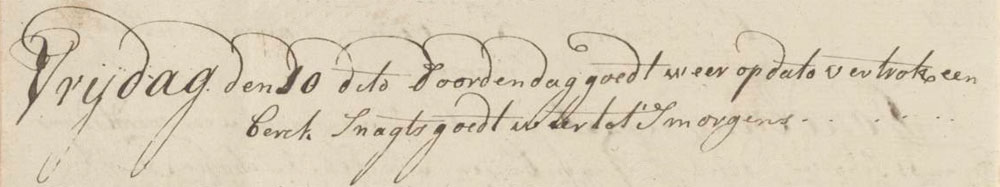 Vrijdag den 10 dito Doordendag goedt weer op dato vertrok een
berck Snagts goedt weer tot Smorgens . . . . . . .